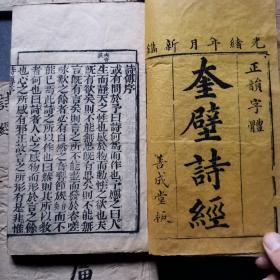 光緒年月新
正韻字體
奎璧詩經
善成堂板
詩傳序
或有問於予曰詩何為而作也予應之曰人
生而靜天之性也感於物而動性之欲也夫
既有欲矣則不能無思既有思矣則不能無
言既有言矣則言之所不能盡而發於咨嗟
咏歎之餘者必有自然之音響節族而不能
已焉此詩之所以作也曰然則其所以教者
何也曰詩者人心之感物而形於言之餘
也心之所感有邪正故言之所形有是非惟